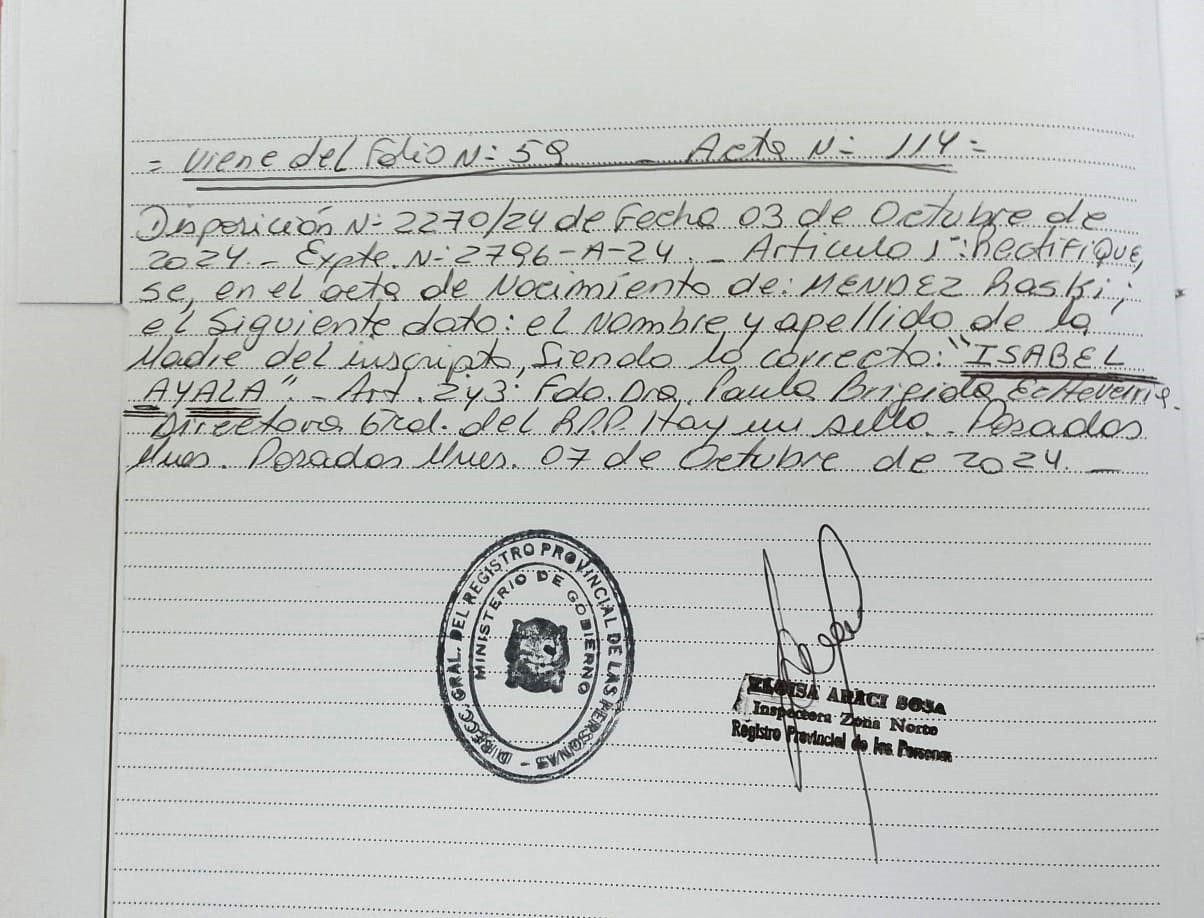 = Viene del Folio N: 59 - Acta N: 114 =
Disposición N: 2270/24 de Fecha 03 de Octubre de
2024. - Expte. N: 2796-A-24. - Articulo 1º: Rectifique,
se, en el acta de Nacimiento de: MENDEZ Raski;
el Siguiente dato: el Nombre y apellido de la
Madre del inscripto, Siendo lo correcto: "ISABEL
AYALA". - Art. 2y3: Fdo. Dra. Paula Brigida Echeverria.
Directora Gral. del R.P.P. Hay un sello. Posadas
Mnes. Posadas Mnes. 07 de Octubre de 2024. -
DIRECC. GRAL. DEL REGISTRO PROVINCIAL DE LAS PERSONAS -
MINISTERIO DE GOBIERNO
ELOISA ARACI SOSA
Inspectora Zona Norte
Registro Provincial de las Personas